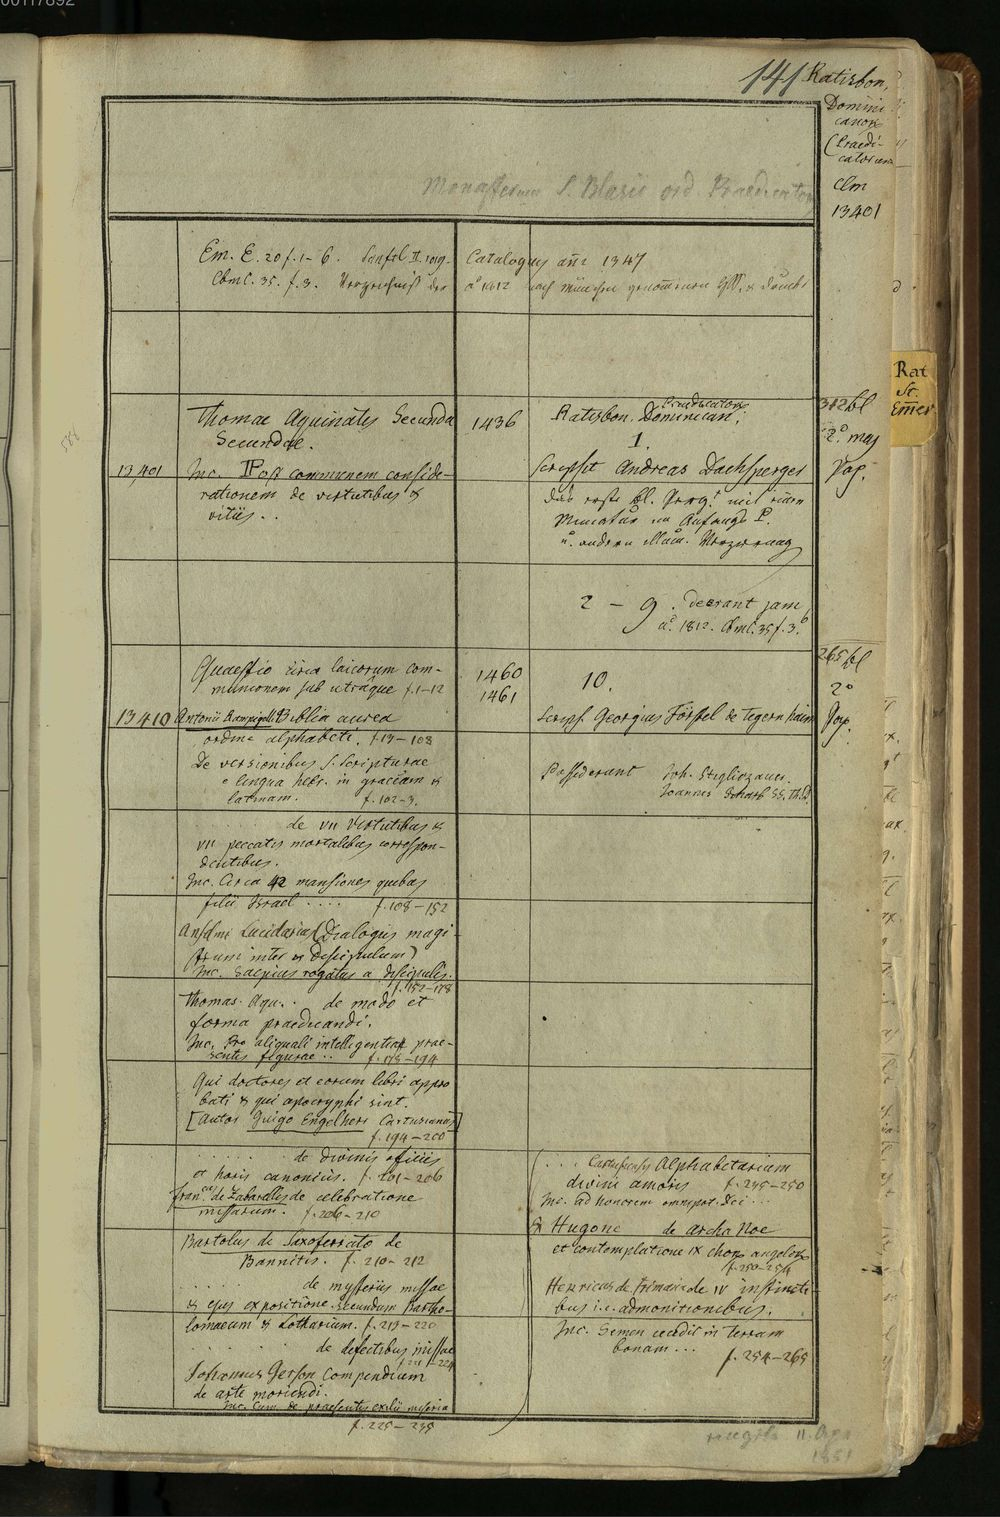 00117892
141 Ratisbon.
Domini
canor
(Praedi-
catorum
Clm
13401
Monasterium S. Blasii ord. Praedicator
Em. E. 20 f. 1-6.
Catalogus añi 1347
Cbml. 35. f. 3. Verzeichniß der
aº 1812 nach München genom̄enen
Rat
St.
Em̄er
Thomae Aquinatis Secunda
Secundae.
1436
Ratisbon. Dominican.
Praedicator
1.
2º maj
Pap.
13,401
Inc. Post communem conside-
rationem de virtutibus &
vitiis..
Scripsit Andreas Dachsperger
Das erste bl. Perg. mit einem
Miniatur im Anfangs P.
u. andern Verzierung
2 – 9. deerant jam
aº 1812. Cbml. 35 f. 3.b
Quaestio circa laicorum com-
munionem sub utraque f. 1-12
1460
1461
10.
265 bl
2º
Pap.
13410 Antonii Rampigolli Biblia aurea
ordine alphabeti. f. 13-108
Scrips. Georgius Förstel de Tegernhaim
De versionibus S. Scripturae
e lingua hebr. in graecam &
latinam. f. 102-3.
Possiderunt Joh.
Joannes
de VII virtutibus &
VII peccatis mortalibus correspon-
dentibus.
Inc. Circa 42 mansiones quibus
filii Israel .... f. 108-152
Anselmi Lucidarius (Dialogus magi-
strum inter & Discipulum)
Inc. Saepius rogatus a discipulis.
f. 152-178
Thomas Aqu.. de modo et
forma praedicandi.
Inc. Pro aliquali intelligentia prae-
sentis figurae .. f. 178-194
Qui doctores et eorum libri appro
bati & qui apocryphi sint.
[Autor Guigo Engelherr Cartusianus]
f. 194-200
de divinis officiis
et horis canonicis. f. 201-206
Franc. de Zabarellis de celebratione
missarum. f. 206-210
Bartolus de Saxoferrato de
Bannitis. f. 210-212
de mysteriis missae
& ejus expositione secundum Bartho-
lomaeum & Lotharium. f. 213-220
de defectibus missae
f. 221-224
Johannes Gerson Compendium
de arte moriendi.
Inc. Cum de praesentis exilii miseria
f. 225-235
Cartusiensis Alphabetarium
divini amoris f. 235-250
Inc. ad honorem omnipot. Dei ...
Ex Hugone de archa Noe
et contemplatione IX chor angelor
f. 250-254
Henricus de Frimaria de IV instincti-
bus i.e. admonitionibus.
Inc. Semen cecidit in terram
bonam ... f. 254-265
1851